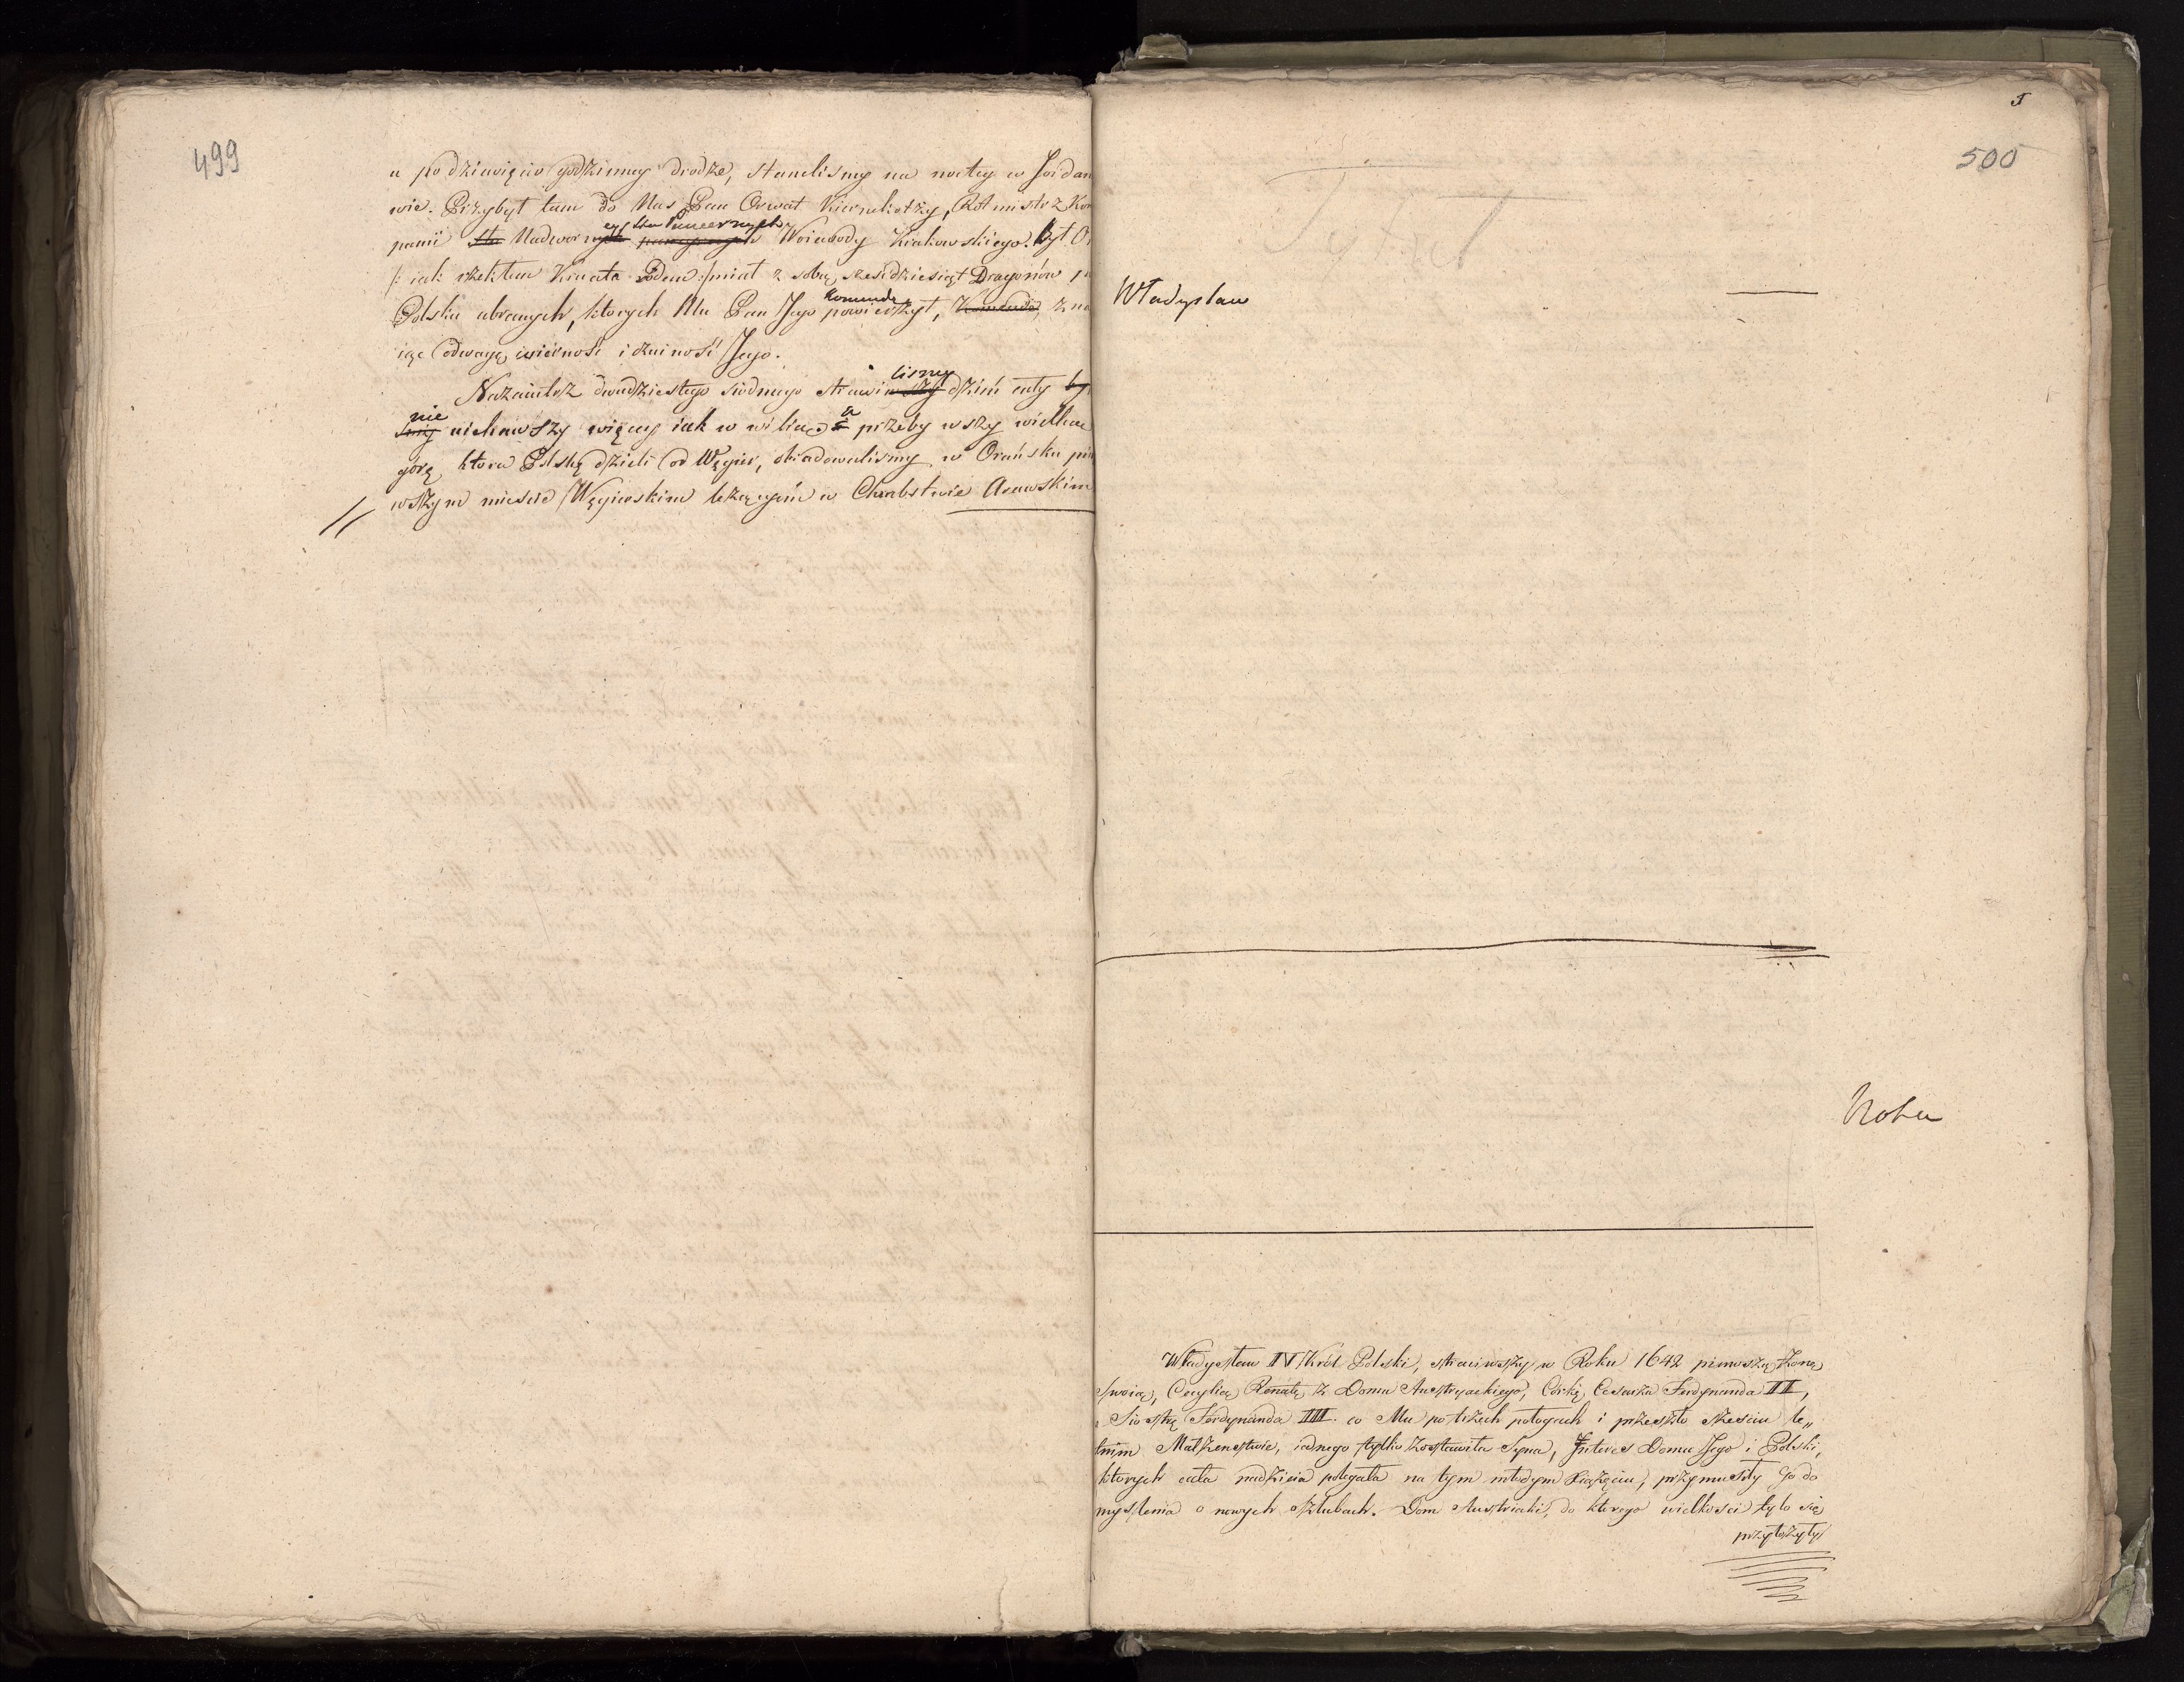 499
a po dziewięcio godzinney drodze, stanelismy na nocleg w Jordan
wie. Przybył tam do Nas Pan Orwat Rotmistrz Kom
panii Sta Nadworney Stu Pancernych Woiewody Krakowskiego. był On
/: iak rzekłem Kroata Rodem :/ miał z sobą szesćdziesiąt Dragonów po
Polsku ubranych, ktorych Mu Pan Jego kommendę powierzył, zna
iąc odwagę, wierność i czuiność Jego.
Nazaiutrz dwudziestego siódmego strawilismy dzień cały
nie uiechawszy więcey iak w wilią, a przebywszy wielką
górę ktora Polskę dzieli od Węgier, obiadowalismy w Orańsku pier
wszym miescie Węgierskim leżącym w Chrabstwie Arawskim
5
500
Tytuł
Władysław
Nota
Władysław IV Król Polski, straciwszy w Roku 1642 pierwszą Żonę
Swoią, Cecylią Renatę z Domu Austryackiego, Córkę Cesarza Ferdynanda II,
a Siostrę Ferdynanda III. co Mu po trzech połogach i przeszło szesciu le„
tnim Małżenstwie, iednego tylko zostawiła Syna, Interes Domu Jego i Polski,
ktorych cała nadzieia polegała na tym młodym Xiążęciu, przymusiły Go do
myslenia o nowych szlubach. Dom Austriacki, do ktorego wielkosci tylo się
przyłożyły